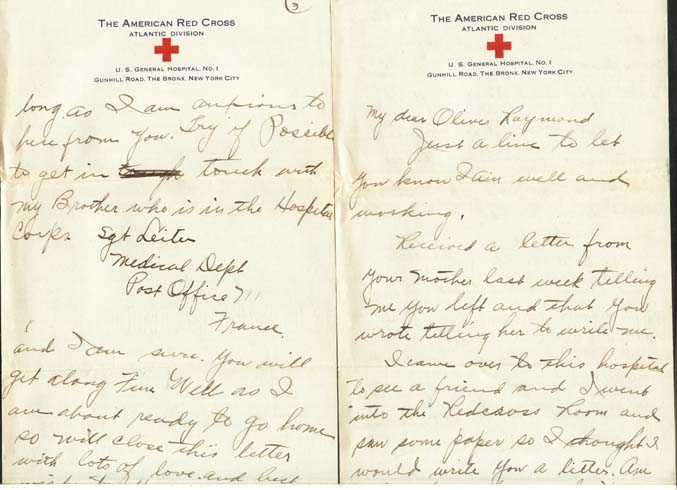 3
THE AMERICAN RED CROSS
ATLANTIC DIVISION
U. S. GENERAL HOSPITAL, NO. 1
GUNHILL ROAD, THE BRONX, NEW YORK CITY
long, as I am anxious to
here from you. Try if Possible
to get in touch with
my Brother who is in the Hospital
Corps. Sgt Leiter
Medical Dept
Post Office 711
France.
and I am sure. you will
get along Fine Well as I
am about ready to go home
so will close this letter
with lots of love. and best
THE AMERICAN RED CROSS
ATLANTIC DIVISION
U. S. GENERAL HOSPITAL, NO. 1
GUNHILL ROAD, THE BRONX, NEW YORK CITY
My dear Oliver Raymond
Just a line to let
you know I am well and
working.
Received a letter from
your mother last week telling
me you left and that you
wrote telling her to write me.
I came over to this hospital
to see a friend and I went
into the Redcross Room and
saw some paper so I thought I
would write you a letter. Am